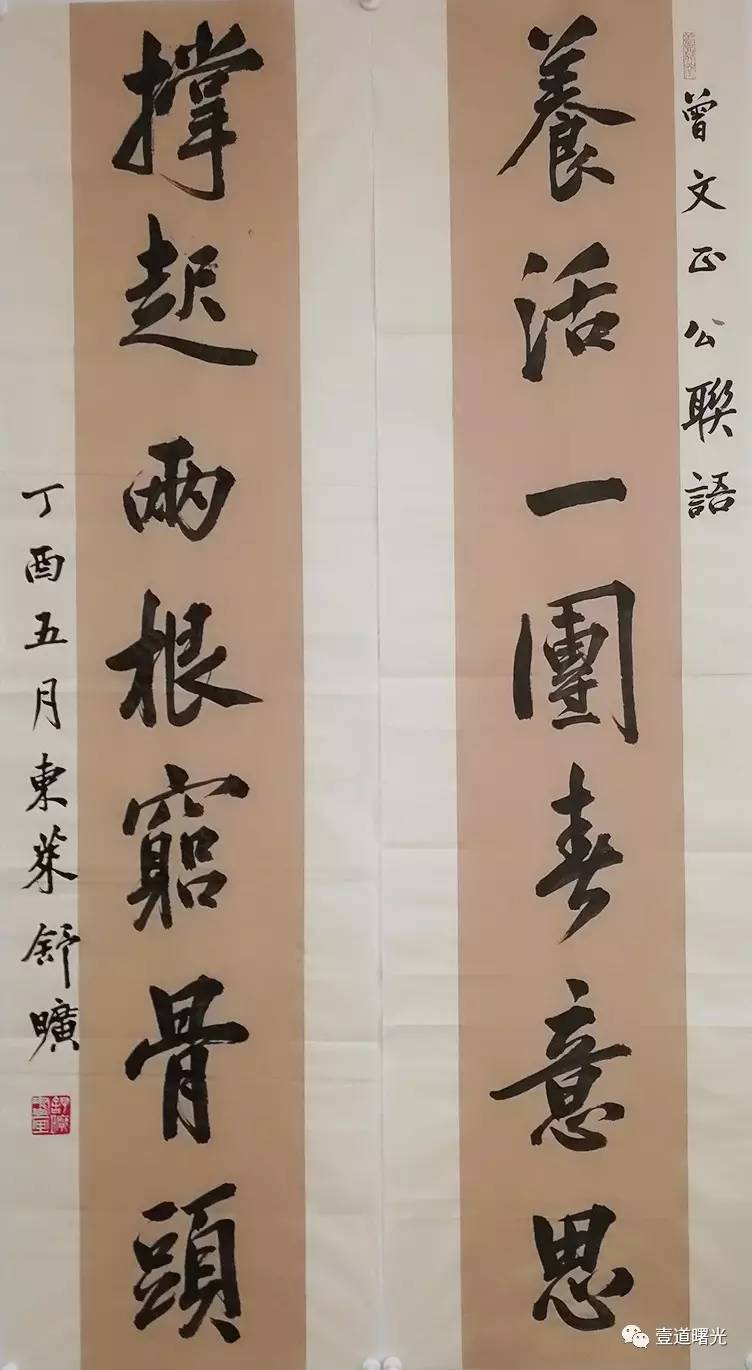 曾文正公聯語
養活一團春意思
撐起兩根窮骨頭
丁酉五月東萊舒曠
壹道曙光